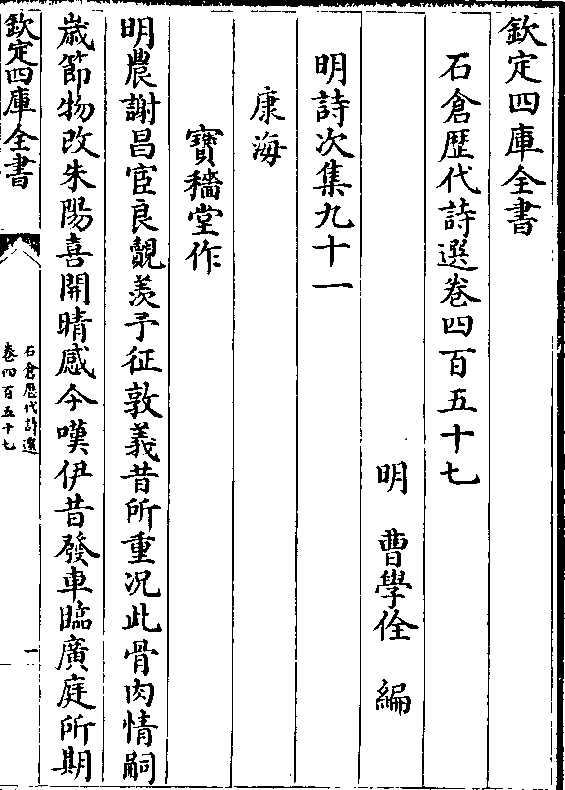 欽定四庫全書
石倉歷代詩選卷四百五十七
明 曹學佺 編
明詩次集九十一
康海
寶穡堂作
明農謝昌宦良覿羨予征敦義昔所重况此骨肉情嗣
歳節物改朱陽喜開晴感今嘆伊昔發車臨廣庭所期
欽定四庫全書
石倉歷代詩選
卷四百五十七
一